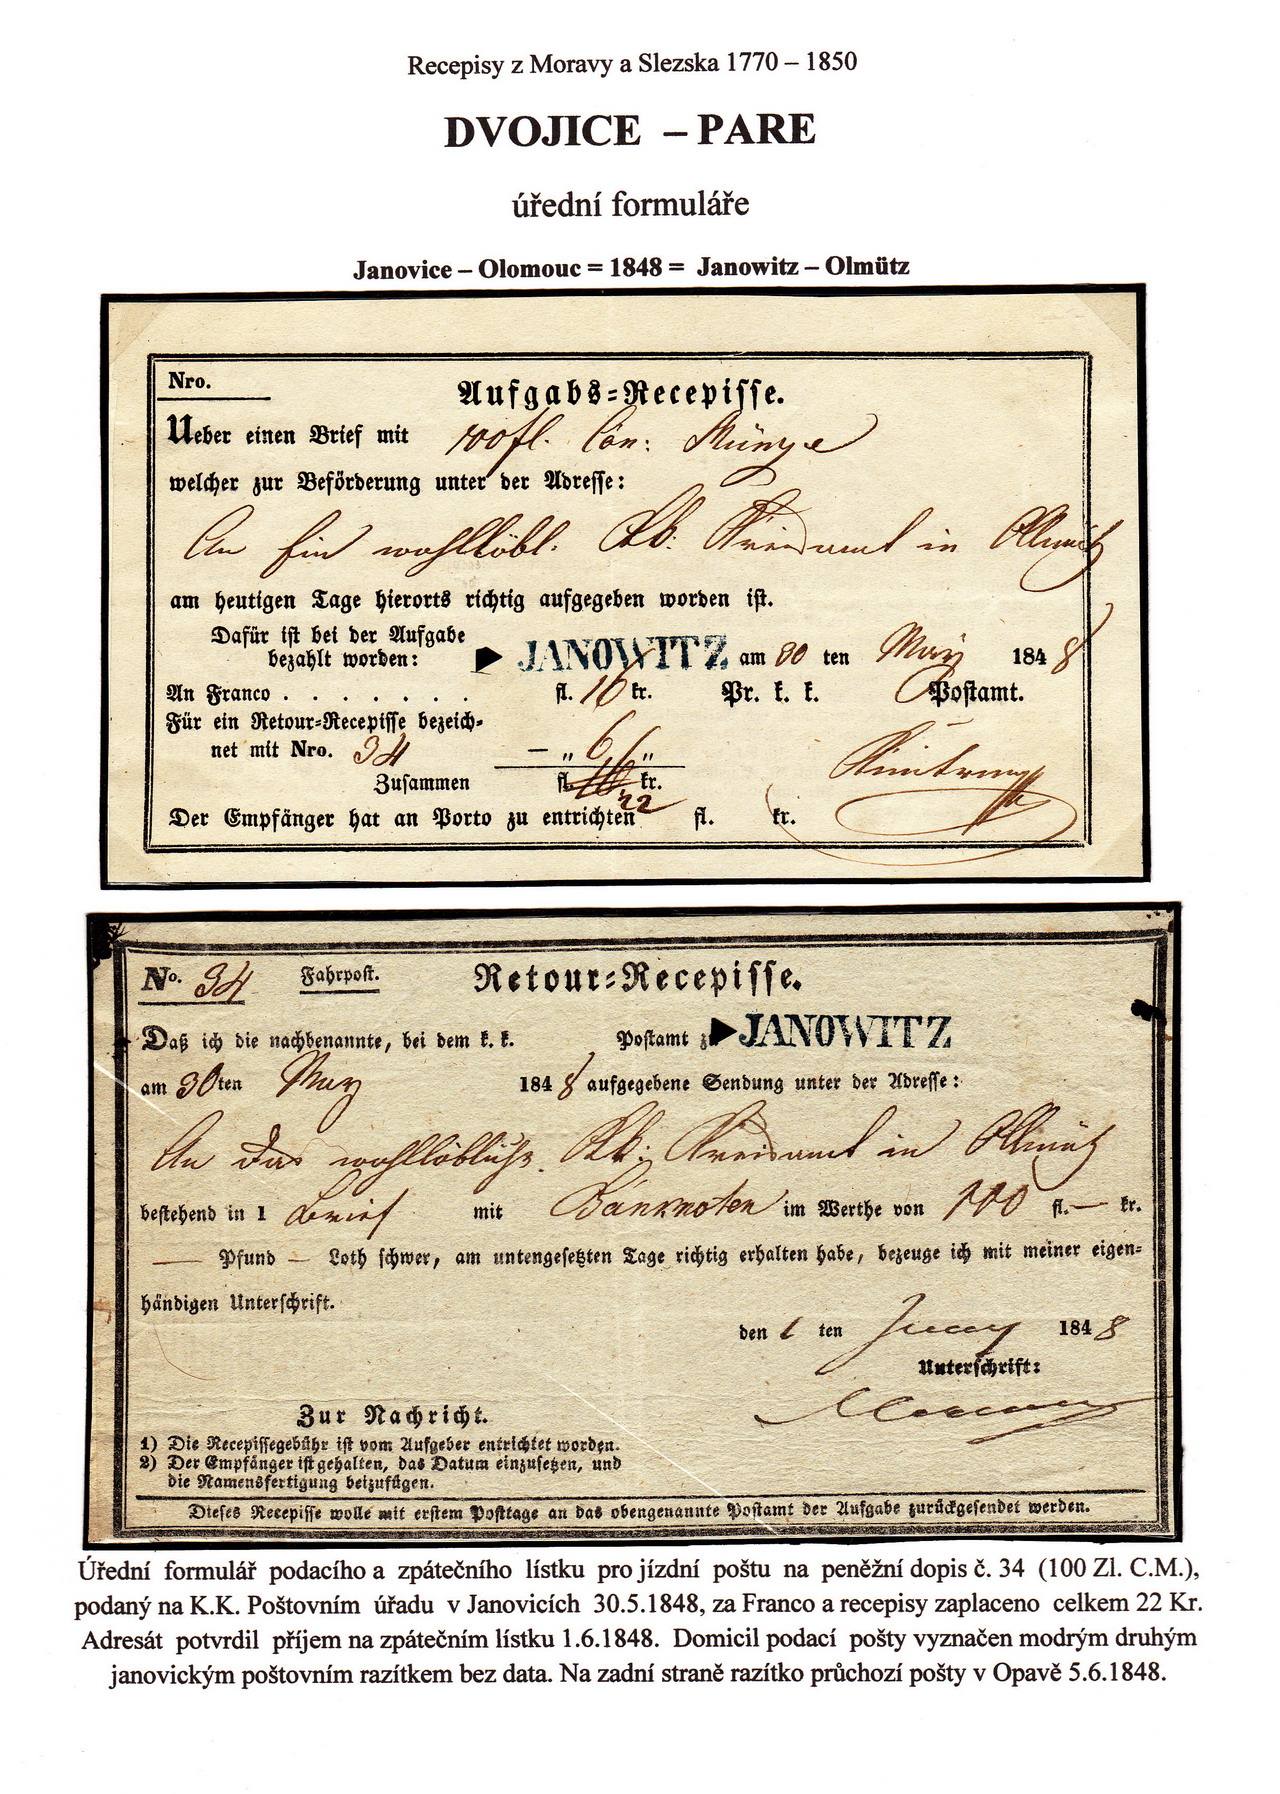 Recepisy z Moravy a Slezska 1770 – 1850
DVOJICE – PARE
úřední formuláře
Janovice – Olomouc = 1848 = Janowitz – Olmütz
Nro.
Aufgabs-Recepisse.
Ueber einen Brief mit 100 fl. Con: Münze
welcher zur Beförderung unter der Adresse:
An Ein wohllöbl. KK: Kreisamt in Ollmütz
am heutigen Tage hierorts richtig aufgegeben worden ist.
Dafür ist bei der Aufgabe
bezahlt worden: JANOWITZ am 30 ten May 1848
An Franco . . . . . . . fl. 16 kr. Pr. k. k. Postamt.
Für ein Retour-Recepisse bezeich-
net mit Nro. 34 – „ 6 „
Zusammen fl. 16 kr.
22
Der Empfänger hat an Porto zu entrichten fl. kr.
No. 34 Fahrpost. Retour-Recepisse.
Daß ich die nachbenannte, bei dem k. k. Postamt z JANOWITZ
am 30ten May 1848 aufgegebene Sendung unter der Adresse:
An Das wohllöbliche KK: Kreisamt in Ollmütz
bestehend in 1 Brief mit Banknoten im Werthe von 100 fl. — kr.
— Pfund — Loth schwer, am untengesetzten Tage richtig erhalten habe, bezeuge ich mit meiner eigen-
händigen Unterschrift.
den 1 ten Juny 1848
Unterschrift:
Zur Nachricht.
1) Die Recepissegebühr ist vom Aufgeber entrichtet worden.
2) Der Empfänger ist gehalten, das Datum einzusetzen, und
die Namensfertigung beizufügen.
Dieses Recepisse wolle mit erstem Posttage an das obengenannte Postamt der Aufgabe zurückgesendet werden.
Úřední formulář podacího a zpátečního lístku pro jízdní poštu na peněžní dopis č. 34 (100 Zl. C.M.),
podaný na K.K. Poštovním úřadu v Janovicích 30.5.1848, za Franco a recepisy zaplaceno celkem 22 Kr.
Adresát potvrdil příjem na zpátečním lístku 1.6.1848. Domicil podací pošty vyznačen modrým druhým
janovickým poštovním razítkem bez data. Na zadní straně razítko průchozí pošty v Opavě 5.6.1848.